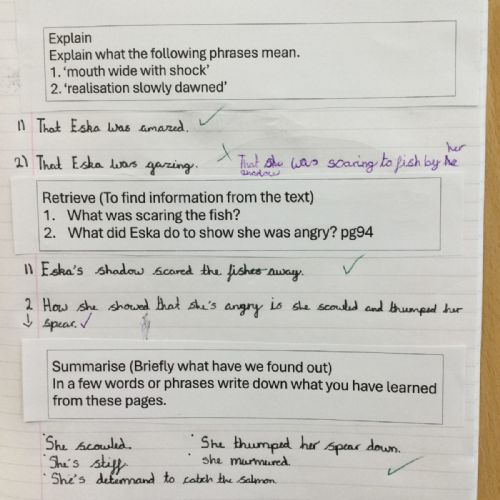 Explain
Explain what the following phrases mean.
1. 'mouth wide with shock'
2. 'realisation slowly dawned'
1) That Eska was amazed.
2) That Eska was gazing. That she was scaring to fish by he her
shadow
Retrieve (To find information from the text)
1. What was scaring the fish?
2. What did Eska do to show she was angry? pg94
1) Eska's shadow scared the fishes away.
2 How she showed that she's angry is she scouled and thumped her
spear.
Summarise (Briefly what have we found out)
In a few words or phrases write down what you have learned
from these pages.
She scowled. She thumped her spear down.
She's stiff. she murmured.
She's determand to catch the salmon.